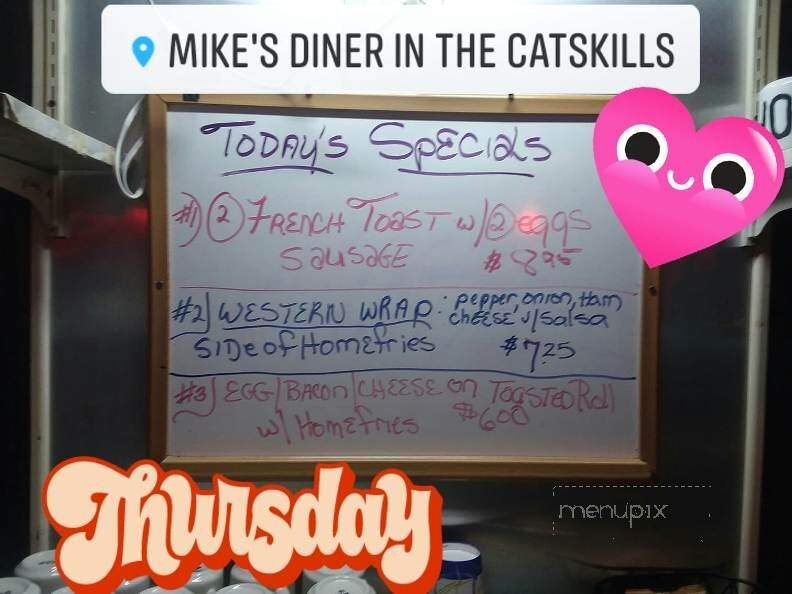 MIKE'S DINER IN THE CATSKILLS
TODAY'S SPECIALS
#1) 2 FRENCH TOAST w/ 2 eggs
SAUSAGE $ 8.95
#2) WESTERN WRAP: pepper, onion, Ham
CHEESE w/ salsa
SIDE of Homefries $7.25
#3) EGG/BACON/CHEESE on TOASTED Roll
w/ Homefries $6.00
Thursday
menupix